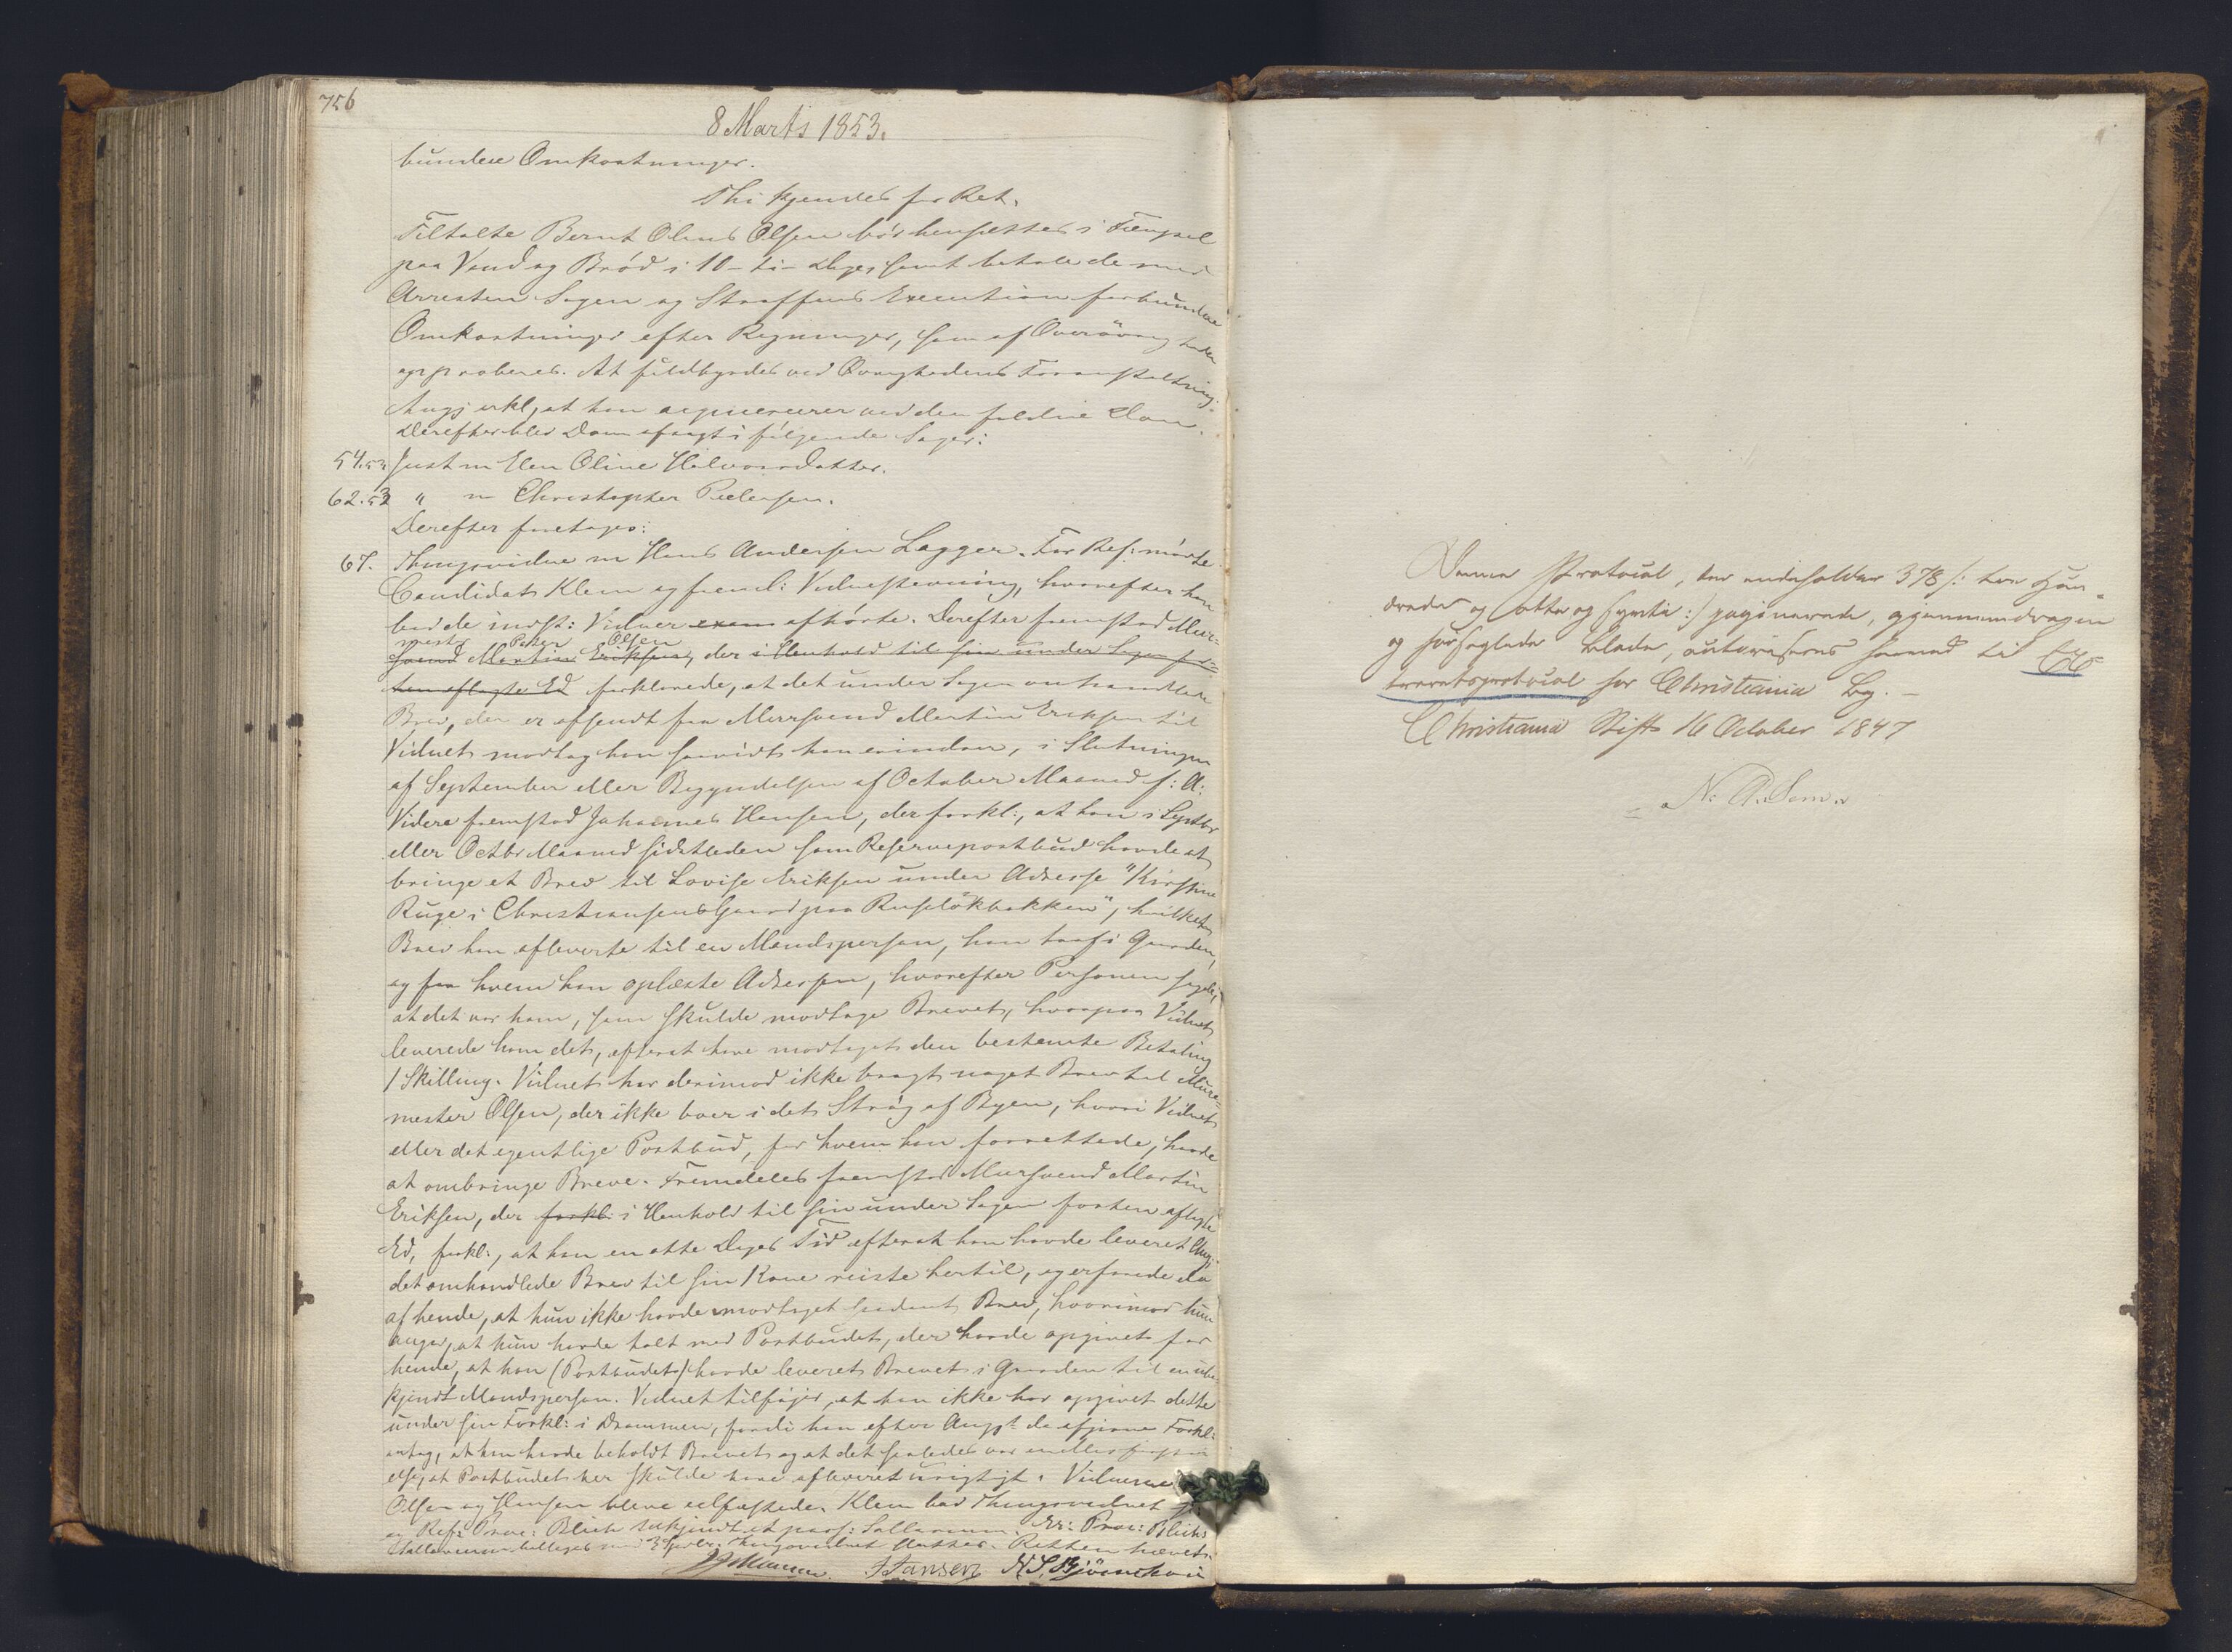 756
8 Marts 1853.
bundne Omkostninger.
Thi kjendes for Ret.
Tiltalte Bernt Olaus Olsen bør hensættes i Fængsel
paa Vand og Brød i 10 - ti - Dage, samt betale de med
Arresten Sagen og Straffens Execution forbundne
Omkostninger efter Regninger, som af Overøvrigheden
approberes. At fuldbyrdes ved Øvrighedens Foranstaltning.
Angj. erkl., at han acquiescerer ved den faldne Dom.
Derefter blev Dom afsagt i følgende Sager:
54.53 Just m Elen Oline Halvorsdatter.
62.53 " m Christopher Pedersen.
Derefter foretages:
67. Thingsvidne m Hans Andersen Lagger. For Ref: mødte
Candidat Klem og freml: Vidnestevning, hvorefter han
bad de indst: Vidner exam afhørte. Derefter fremstod Mur-
mester Peter Olsen
svend Martin Eriksen, der i Henhold til sin under Sagen for-
hen aflagte Ed forklarede, at det under Sagen omhandlede
Brev, der er afsendt fra Muursvend Martin Eriksen til
Vidnet modtog han saavidt han erindrer, i Slutningen
af September eller Begyndelsen af October Maaned f: A:
Videre fremstod Johannes Hansen, der forkl:, at han i Septbr
eller Octbr Maaned sidstleden som Reservepostbud havde at
bringe et Brev til Lovise Eriksen under Adresse "Kirstine
Ruge i Christiansens Gaard paa Ruseløkbakken", hvilket
Brev han afleverte til en Mandsperson, han traf i Gaarden,
og for hvem han oplæste Adressen, hvorefter Personen sagde,
at det var ham, som skulde modtage Brevet, hvorpaa Vidnet
leverede ham det, efterat have modtaget den bestemte Betaling
1 Skilling. Vidnet har derimod ikke bragt noget Brev til Muur-
mester Olsen, der ikke boer i det Strøg af Byen, hvori Vidnet
eller det egentlige Postbud, for hvem han forrettede, havde
at ombringe Breve. Fremdeles fremstod Mursvend Martin
Eriksen, der forkl: i Henhold til sin under Sagen forhen aflagte
Ed, forkl:, at han en otte Dages Tid efterat han havde leveret Ang:
det omhandlede Brev til sin Kone reiste hertil, og erfarede da
af hende, at hun ikke havde modtaget saadant Brev, hvorimod hun
angav, at hun havde talt med Postbudet, der havde opgivet for
hende, at han (Postbudet) havde leveret Brevet i Gaarden til en ube-
kjendt Mandsperson. Vidnet tilføjer, at han ikke har opgivet dette
under sin Forkl: i Drammen, fordi han efter Angj: da afgivne Forkl:
antog, at han havde beholdt Brevet og at det saaledes var
at Postbudet her skulde have afleveret urigtigt. Vidnerne
Olsen og Hansen bleve edfæstede. Klem bad Thingsvidnet
og Ref: Proc: Blich tilkjendt et pass: Sallarium. Er: Proc: Blichs
Sallarium Thingsvidnet sluttes. Retten hævet.
JJansen N. S. Bjørnstad
Denne Protocol, der indeholder 378 /: tre Hun-
drede og otte og syvti :/ paginerede, gjennemdragne
og forseglede Blade, autoriseres herved til Ex-
traretsprotocol for Christiania By. -
Christiania Stift 16 October 1847
N: A. Sem.